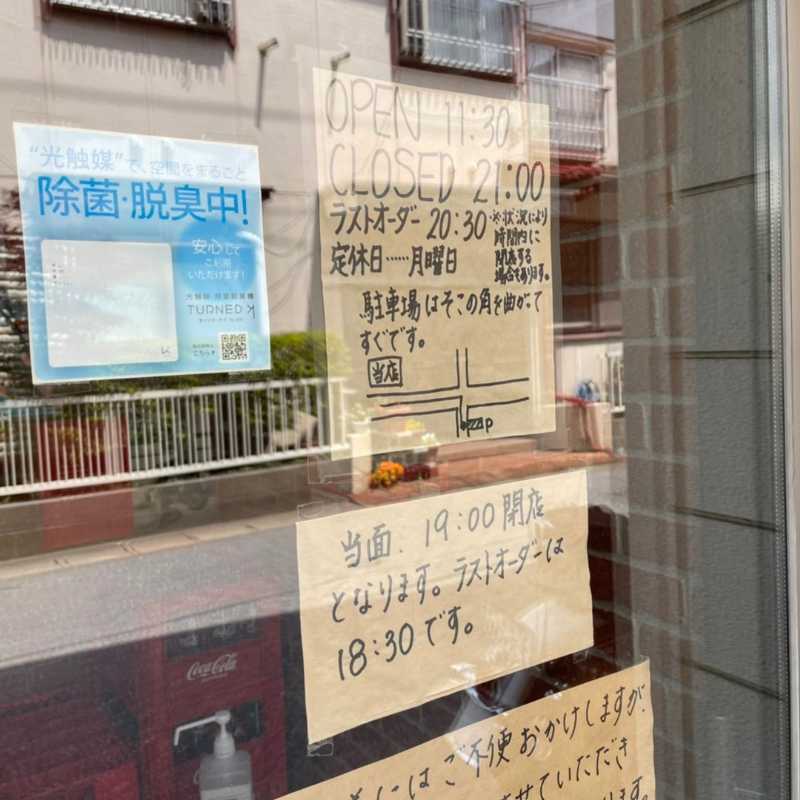 "光触媒"で、空間をまるごと
除菌・脱臭中!
安心して
ご利用
いただけます!
光触媒 除菌脱臭機
TURNED K
こちら
OPEN 11:30
CLOSED 21:00
ラストオーダー 20:30
※状況により
時間内に
閉店する
場合もあります。
定休日……月曜日
駐車場はそこの角を曲がって
すぐです。
当店
当面、19:00 閉店
となります。ラストオーダーは
18:30です。
Coca-Cola
にはご不便おかけしますが、
せていただき
ります。